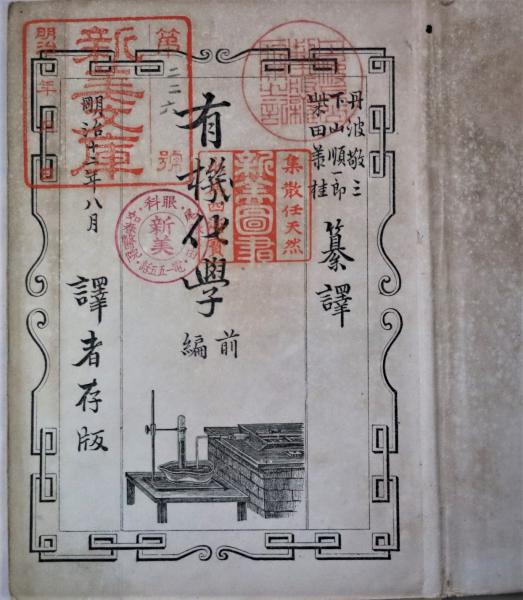 丹波敬三
下山順一郎
柴田承桂
纂譯
有機化學
前編
明治十二年八月
譯者存版
新美文庫
第二二六號
明治年月日
集散任天然
新美圖書
眼科
新美